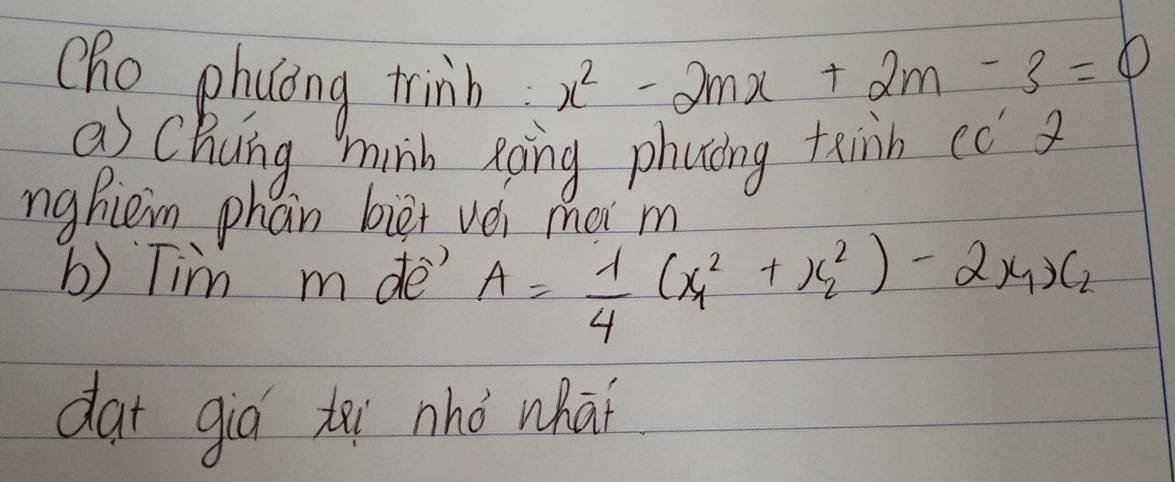 Cho phương trình : x² - 2mx + 2m - 3 = 0
a) Chứng minh rằng phương trình có 2
nghiệm phân biệt với mọi m
b) Tìm m để A = 1/4 (x₁² + x₂²) - 2x₁x₂
đạt giá trị nhỏ nhất.